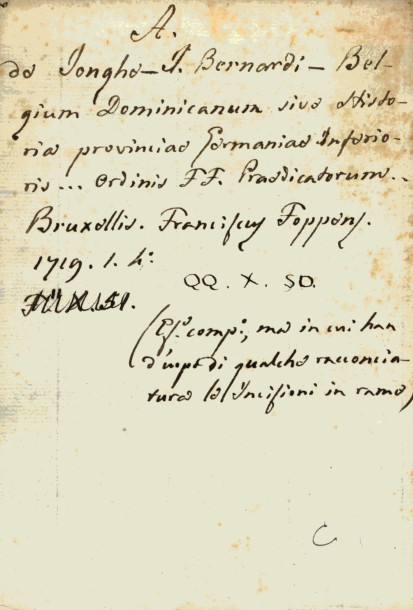 A.
de Jonghe – J. Bernardi – Bel-
gium Dominicanum sive Histo-
ria provinciae Germaniae Inferio-
ris... Ordinis FF. Praedicatorum...
Bruxellis. Franciscus Foppens.
1719. 1. 4:
QQ. X. 50.
(Es: comp:, ma in cui han
d'uopo di qualche racconcia-
tura le incisioni in rame)
C